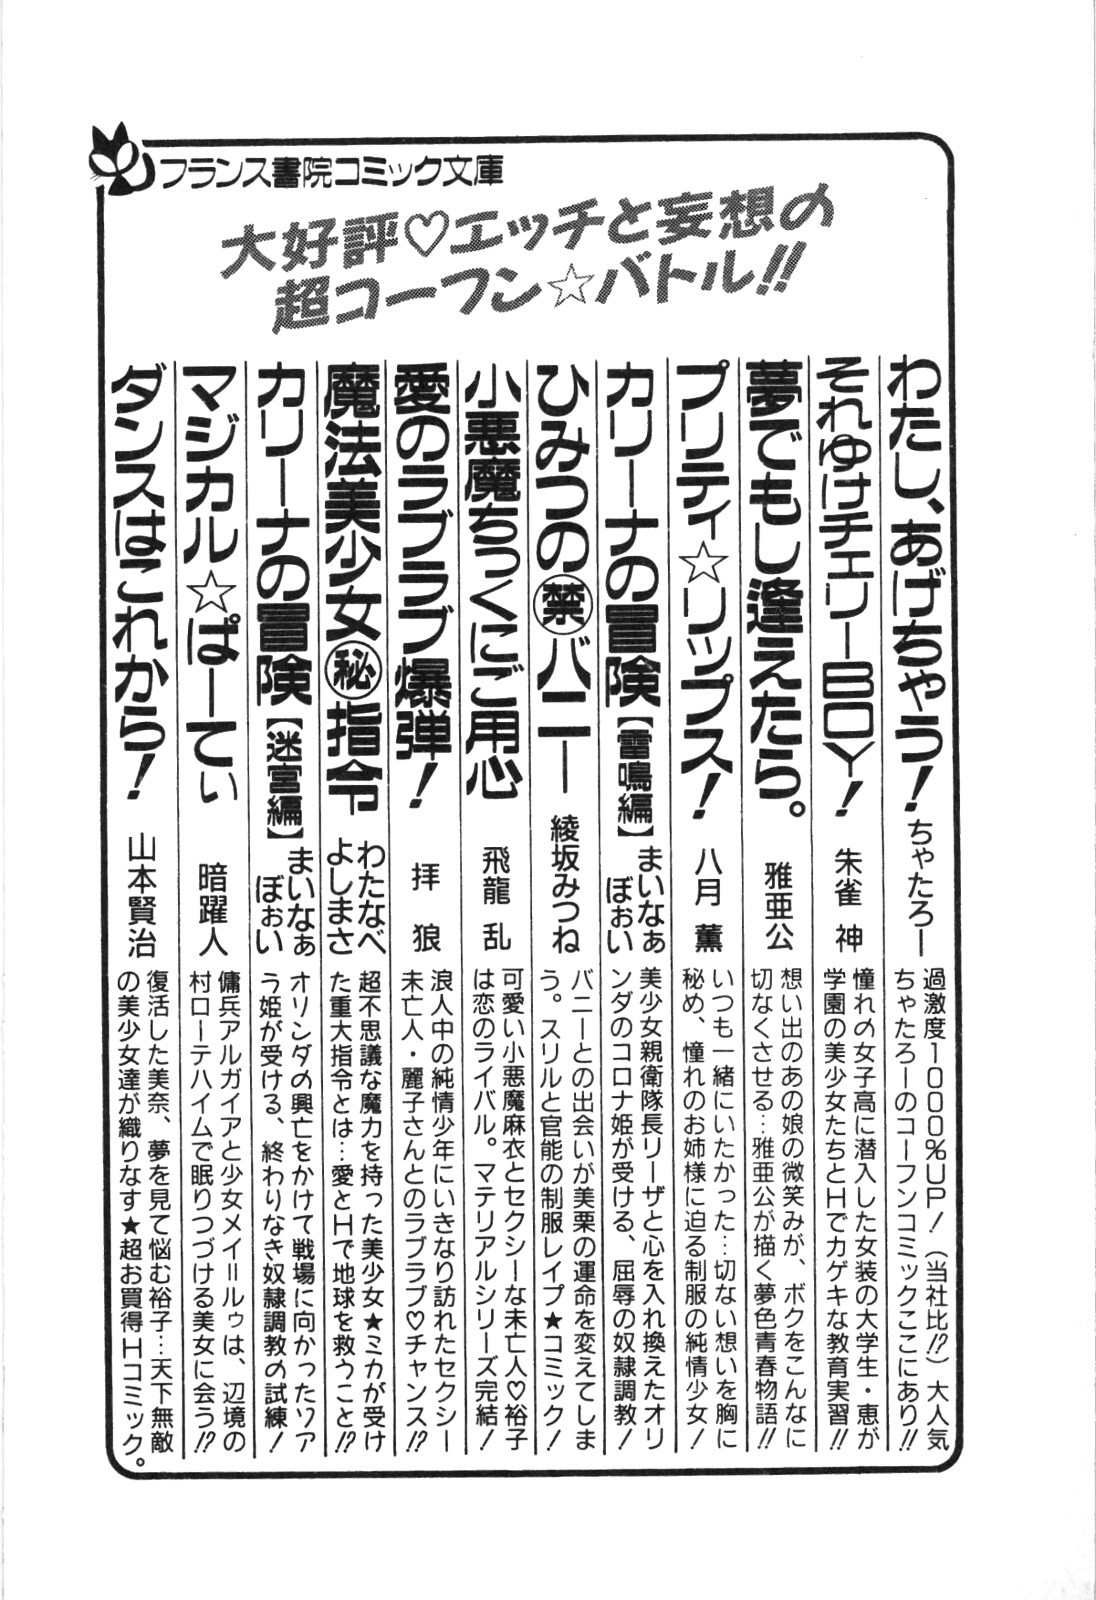 フランス書院コミック文庫
大好評♡エッチと妄想の
超コーフン☆バトル!!
わたし、あげちゃう!
ちゃたろー
過激度1000%UP!(当社比!?)大人気
ちゃたろーのコーフンコミックここにあり!!
それゆけチェリーBOY!
朱雀 神
憧れの女子高に潜入した女装の大学生・恵が
学園の美少女たちとHでカゲキな教育実習!!
夢でもし逢えたら。
雅亜公
想い出のあの娘の微笑みが、ボクをこんなに
切なくさせる…雅亜公が描く夢色青春物語!!
プリティ☆リップス!
八月 薫
いつも一緒にいたかった…切ない想いを胸に
秘め、憧れのお姉様に迫る制服の純情少女!
カリーナの冒険【雷鳴編】
まいなぁ
ぼぉい
美少女親衛隊長リーザと心を入れ換えたオリ
ンダのコロナ姫が受ける、屈辱の奴隷調教!
ひみつの㊩バニー
綾坂みつね
バニーとの出会いが美栗の運命を変えてしま
う。スリルと官能の制服レイプ★コミック!
小悪魔ちっくにご用心
飛龍 乱
可愛い小悪魔麻衣とセクシーな未亡人♡裕子
は恋のライバル。マテリアルシリーズ完結!
愛のラブラブ爆弾!
拝 狼
浪人中の純情少年にいきなり訪れたセクシー
未亡人・麗子さんとのラブラブ♡チャンス!?
魔法美少女㊙指令
わたなべ
よしまさ
超不思議な魔力を持った美少女★ミカが受け
た重大指令とは…愛とHで地球を救うこと!?
カリーナの冒険【迷宮編】
まいなぁ
ぼぉい
オリンダの興亡をかけて戦場に向かったソア
う姫が受ける、終わりなき奴隷調教の試練!
マジカル☆ぱーてぃ
暗躍人
傭兵アルガイアと少女メイ=ルゥは、辺境の
村ローテハイムで眠りつづける美女に会う!?
ダンスはこれから!
山本賢治
復活した美奈、夢を見て悩む裕子…天下無敵
の美少女達が織りなす★超お買得Hコミック。